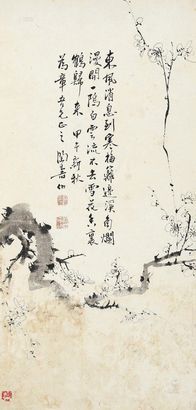 東風消息到寒梅籬邊溪角爛
漫開一隖白雲流不去雪花香裏
鶴歸來 甲午新秋
為章吾兄正之 陶壽伯